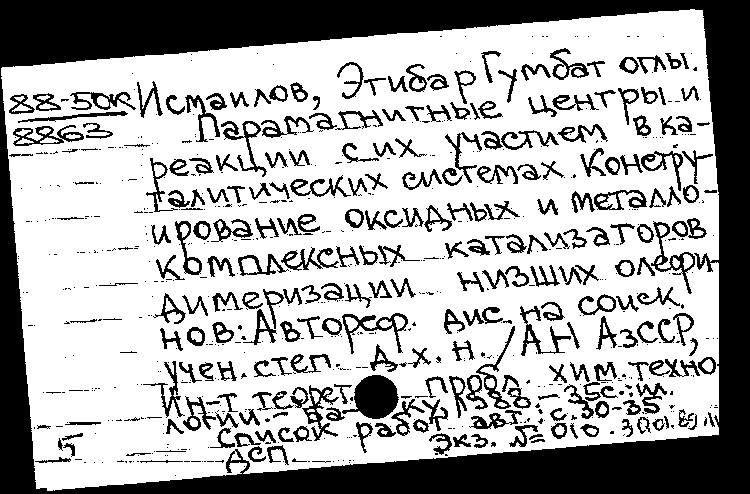 88-50К Исмаилов, Этибар Гумбат оглы.
8863 Парамагнитные центры и
реакции с их участием в ка-
талитических системах. Констру-
ирование оксидных и металло-
комплексных катализаторов
димеризации низших олефи-
нов: Автореф. дис. на соиск.
учен. степ. д.х.н. / АН АзССР,
Ин-т теорет. пробл. хим. техно-
логии. - Ба-ку, 1988. - 35с.: ил.
Список работ авт.: с. 30-35.
ДСП. Экз. № 010. 30.01.89.
5